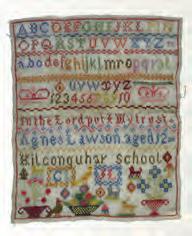 ABCDEFGHIJKLMN
OPQRSTUVWXYZ
abcdefghijklmnopqrst
uvwxyz
12345678910
In the Lord put I My trust
Agnes Lawson aged 12
Kilconquhar School